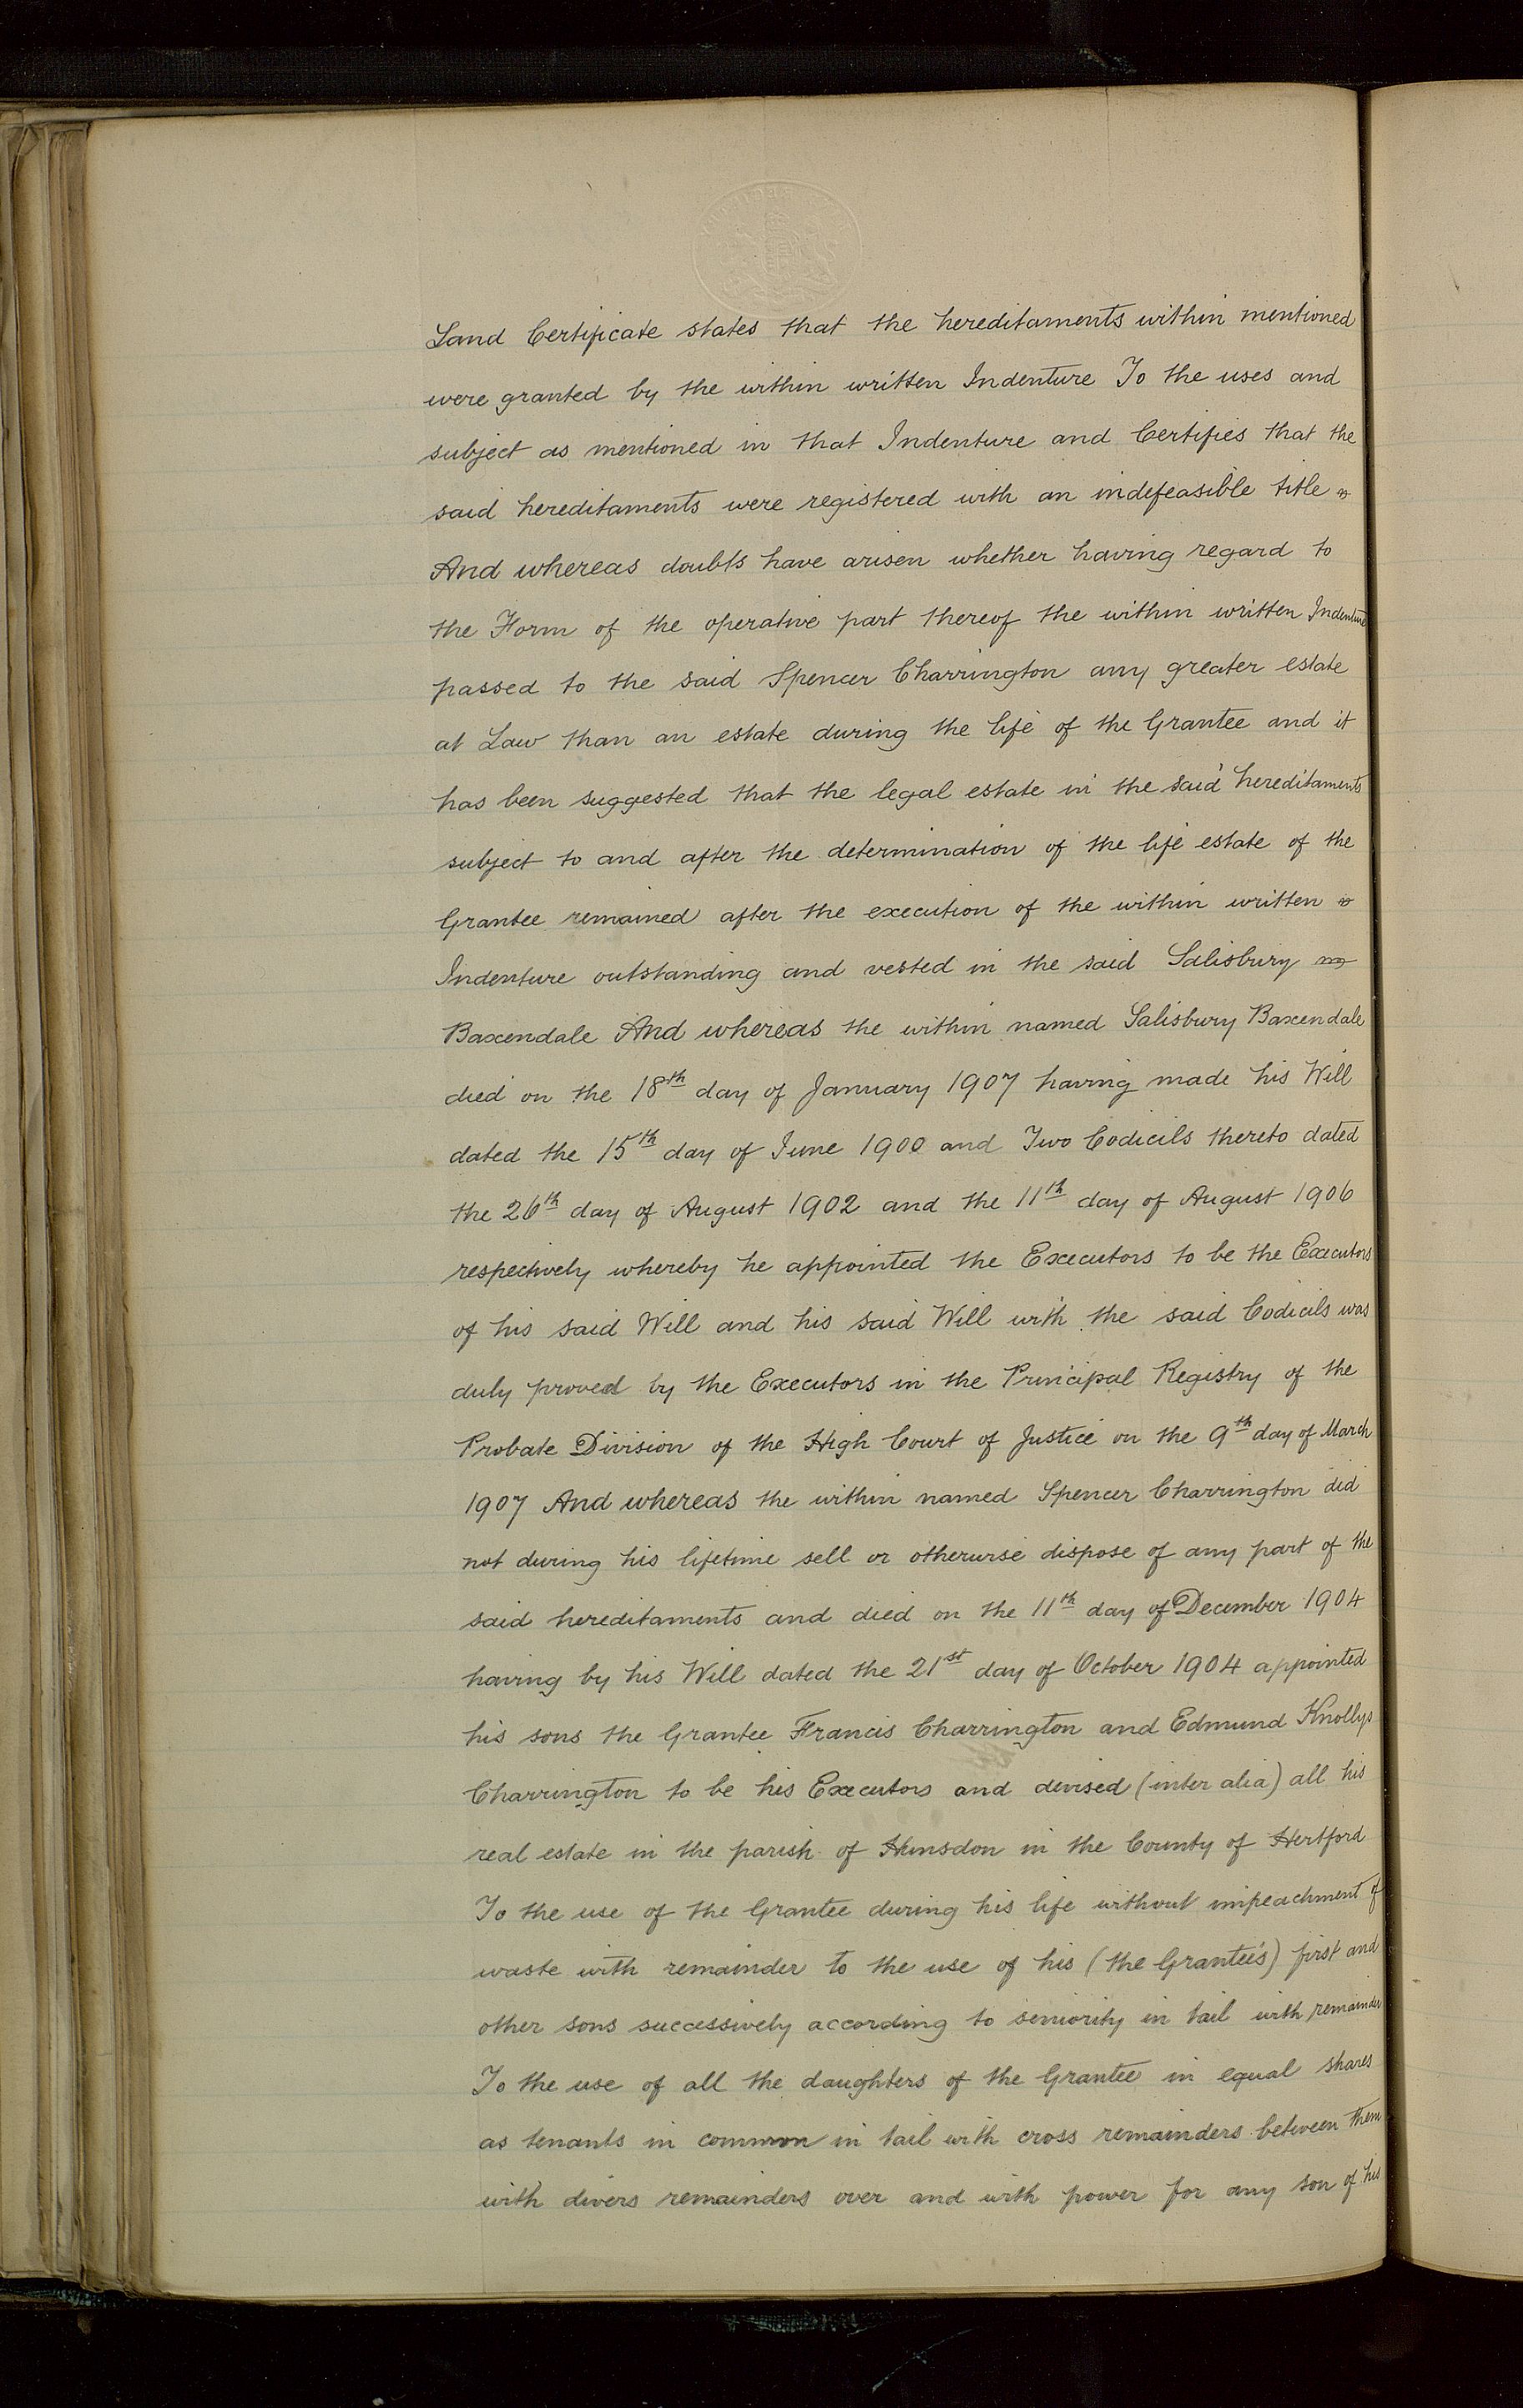 Land Certificate states that the hereditaments within mentioned
were granted by the within written Indenture To the uses and
subject as mentioned in that Indenture and Certifies that the
said hereditaments were registered with an indefeasible title
And whereas doubts have arisen whether having regard to
the Form of the operative part thereof the within written Indenture
passed to the said Spencer Charrington any greater estate
at Law than an estate during the life of the Grantee and it
has been suggested that the legal estate in the said hereditaments
subject to and after the determination of the life estate of the
Grantee remained after the execution of the within written
Indenture outstanding and vested in the said Salisbury
Baxendale And whereas the within named Salisbury Baxendale
died on the 18th day of January 1907 having made his Will
dated the 15th day of June 1900 and Two Codicils thereto dated
the 26th day of August 1902 and the 11th day of August 1906
respectively whereby he appointed the Executors to be the Executors
of his said Will and his said Will with the said Codicils was
duly proved by the Executors in the Principal Registry of the
Probate Division of the High Court of Justice on the 9th day of March
1907 And whereas the within named Spencer Charrington did
not during his lifetime sell or otherwise dispose of any part of the
said hereditaments and died on the 11th day of December 1904
having by his Will dated the 21st day of October 1904 appointed
his sons the Grantee Francis Charrington and Edmund Knollys
Charrington to be his Executors and devised (inter alia) all his
real estate in the parish of Hunsdon in the County of Hertford
To the use of the Grantee during his life without impeachment of
waste with remainder to the use of his (the Grantee's) first and
other sons successively according to seniority in tail with remainder
To the use of all the daughters of the Grantee in equal shares
as tenants in common in tail with cross remainders between them
with divers remainders over and with power for any son of his